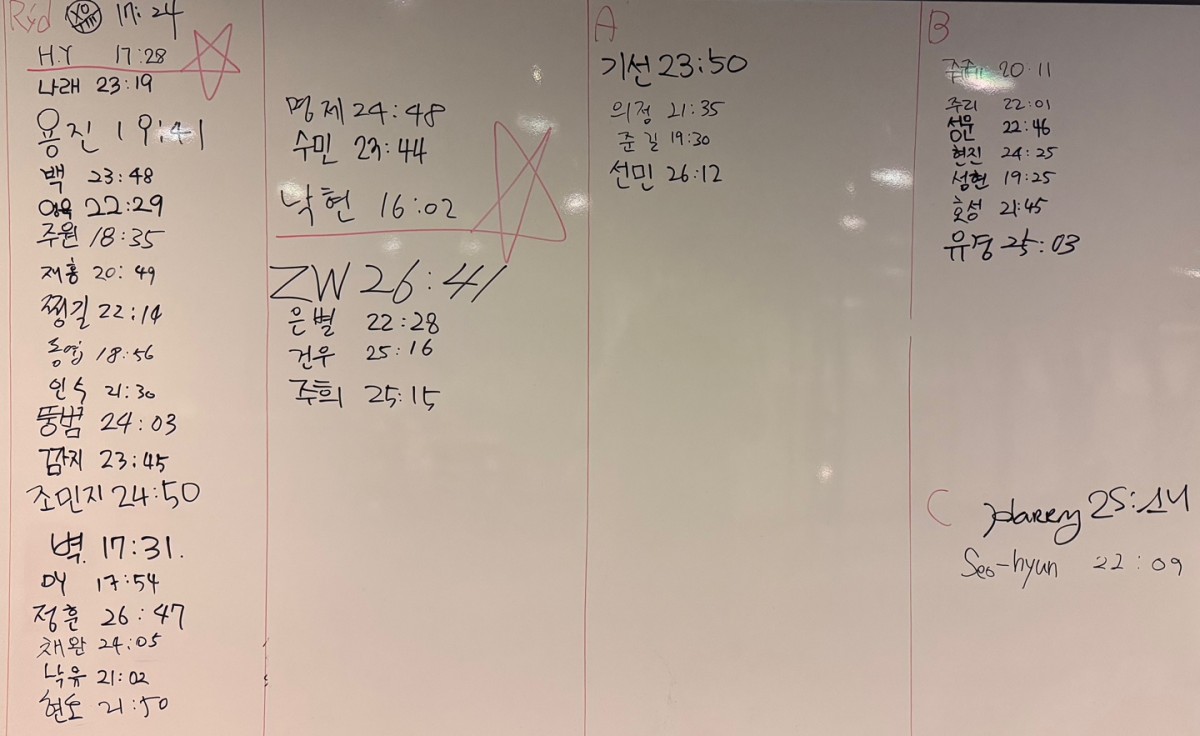 Rxd 17:24
H.Y 17:28
나래 23:19
용진 19:41
백 23:48
22:29
주원 18:35
재홍 20:49
찡길 22:14
동엽 18:56
인식 21:30
뚱범 24:03
깜지 23:45
조민지 24:50
벽 17:31.
DY 17:54
정훈 26:47
채완 24:05
낙유 21:02
현도 21:50
명제 24:48
수민 23:44
낙현 16:02
ZW 26:41
은별 22:28
건우 25:16
주희 25:15
A
기선 23:50
의정 21:35
준길 19:30
선민 26:12
B
20:11
주리 22:01
성윤 22:46
현진 24:25
섬현 19:25
호성 21:45
유경 25:03
C
Harry 25:14
Seo-hyun 22:09